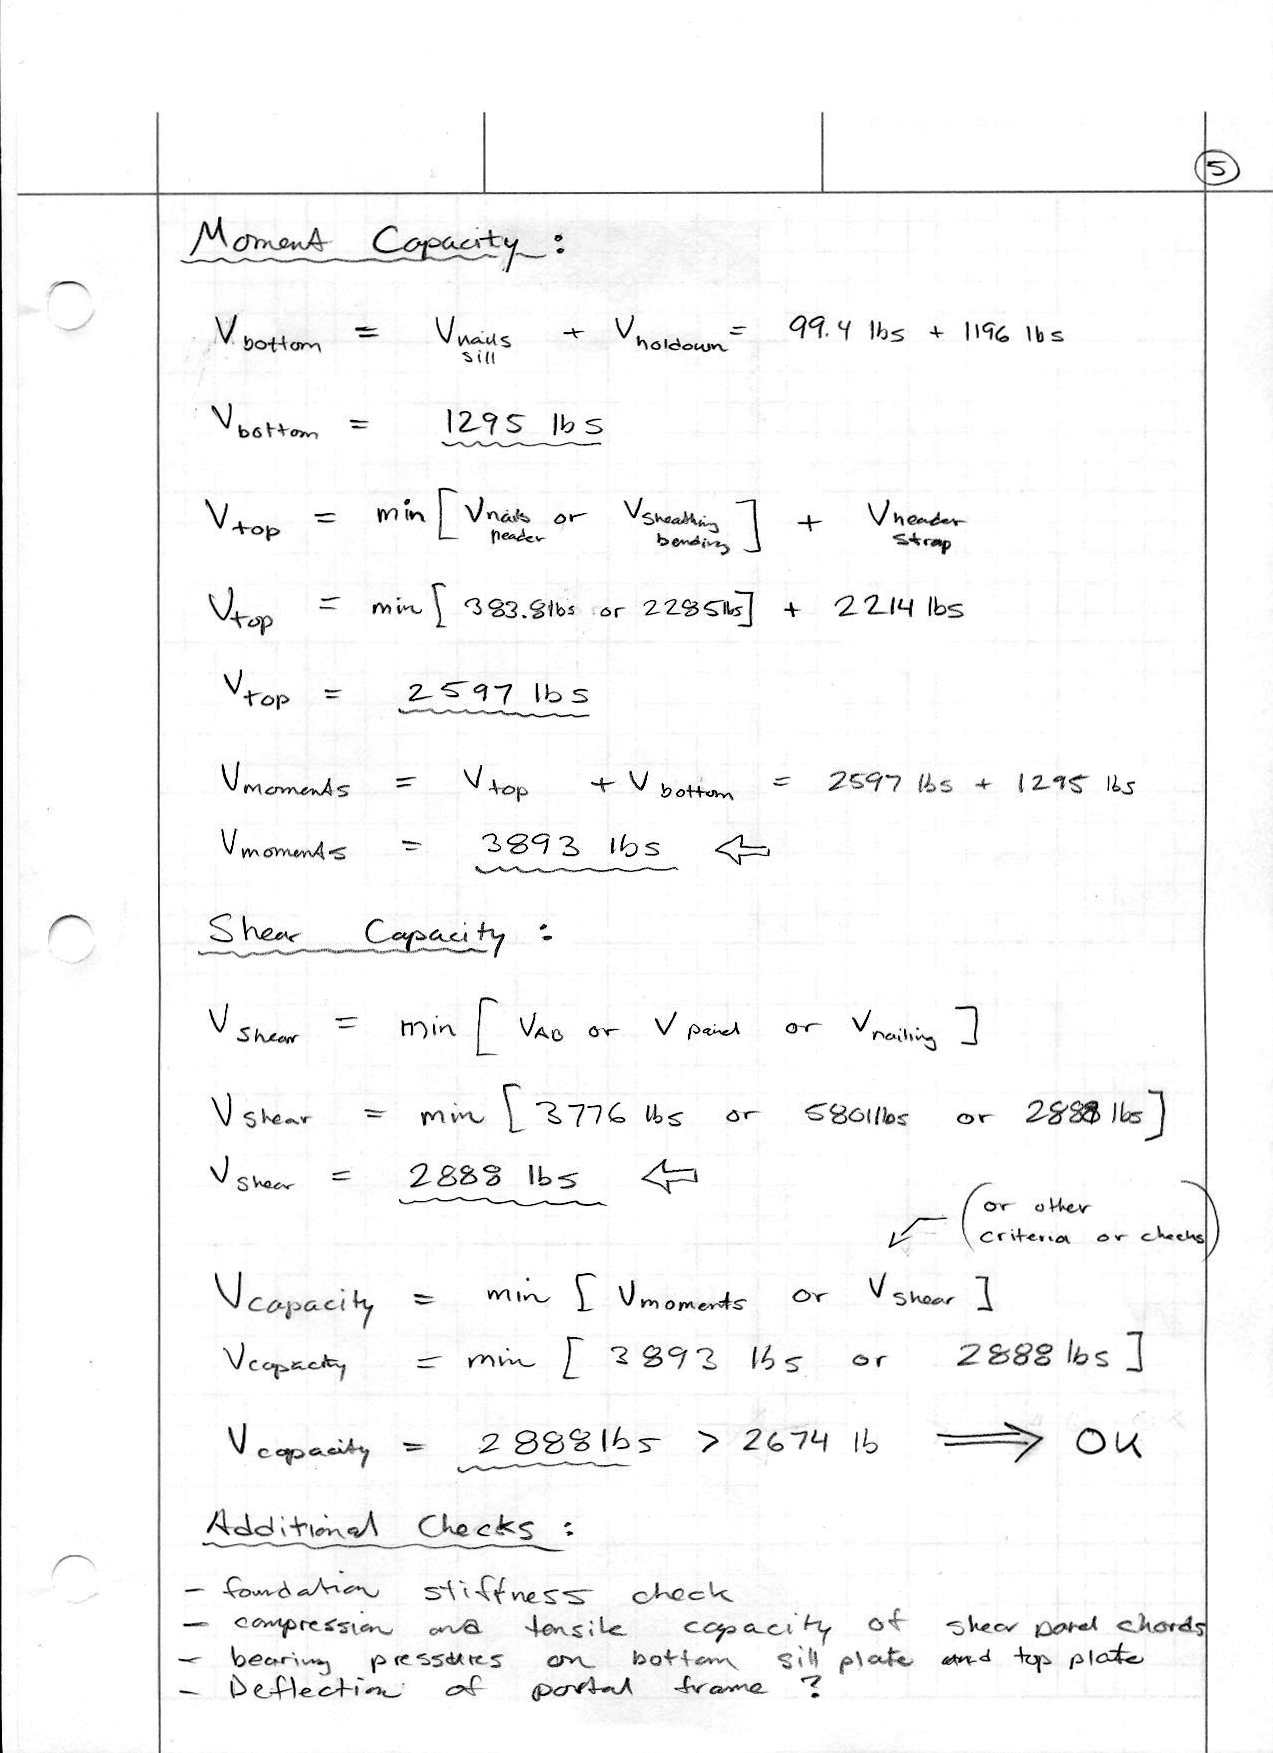 5
Moment Capacity:
Vbottom = Vnails sill + Vholdown = 99.4 lbs + 1196 lbs
Vbottom = 1295 lbs
Vtop = min [ Vnails header or Vsheathing bending ] + Vheader strap
Vtop = min [ 383.8 lbs or 2285 lbs ] + 2214 lbs
Vtop = 2597 lbs
Vmoments = Vtop + Vbottom = 2597 lbs + 1295 lbs
Vmoments = 3893 lbs ⇐
Shear Capacity:
Vshear = min [ VAB or Vpanel or Vnailing ]
Vshear = min [ 3776 lbs or 5801 lbs or 2888 lbs ]
Vshear = 2888 lbs ⇐
(or other
criteria or checks)
Vcapacity = min [ Vmoments or Vshear ]
Vcapacity = min [ 3893 lbs or 2888 lbs ]
Vcapacity = 2888 lbs > 2674 lb ⟹ OK
Additional Checks:
- foundation stiffness check
- compression and tensile capacity of shear panel chords
- bearing pressures on bottom sill plate and top plate
- Deflection of portal frame ?